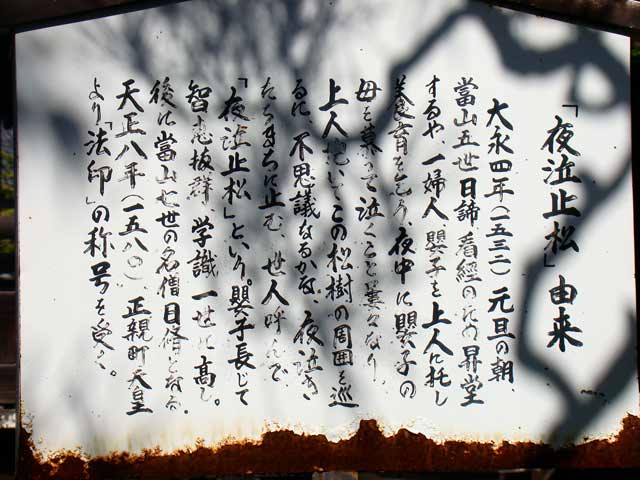 「夜泣止松」由来
大永四年(一五三二)元旦の朝、
當山五世日諦看經のため昇堂
するや、一婦人嬰子を上人に托し
養育を乞う、夜中に嬰子の
母を慕って泣くこと屢々なり、
上人抱いてこの松樹の周囲を巡
るに、不思議なるかな、夜泣き
たちまちに止む、世人呼んで
「夜泣止松」という。嬰子長じて
智恵抜群、学識一世に高し。
後に當山七世の名僧日脩となる。
天正八年(一五八〇)、正親町天皇
より「法印」の称号を受く。